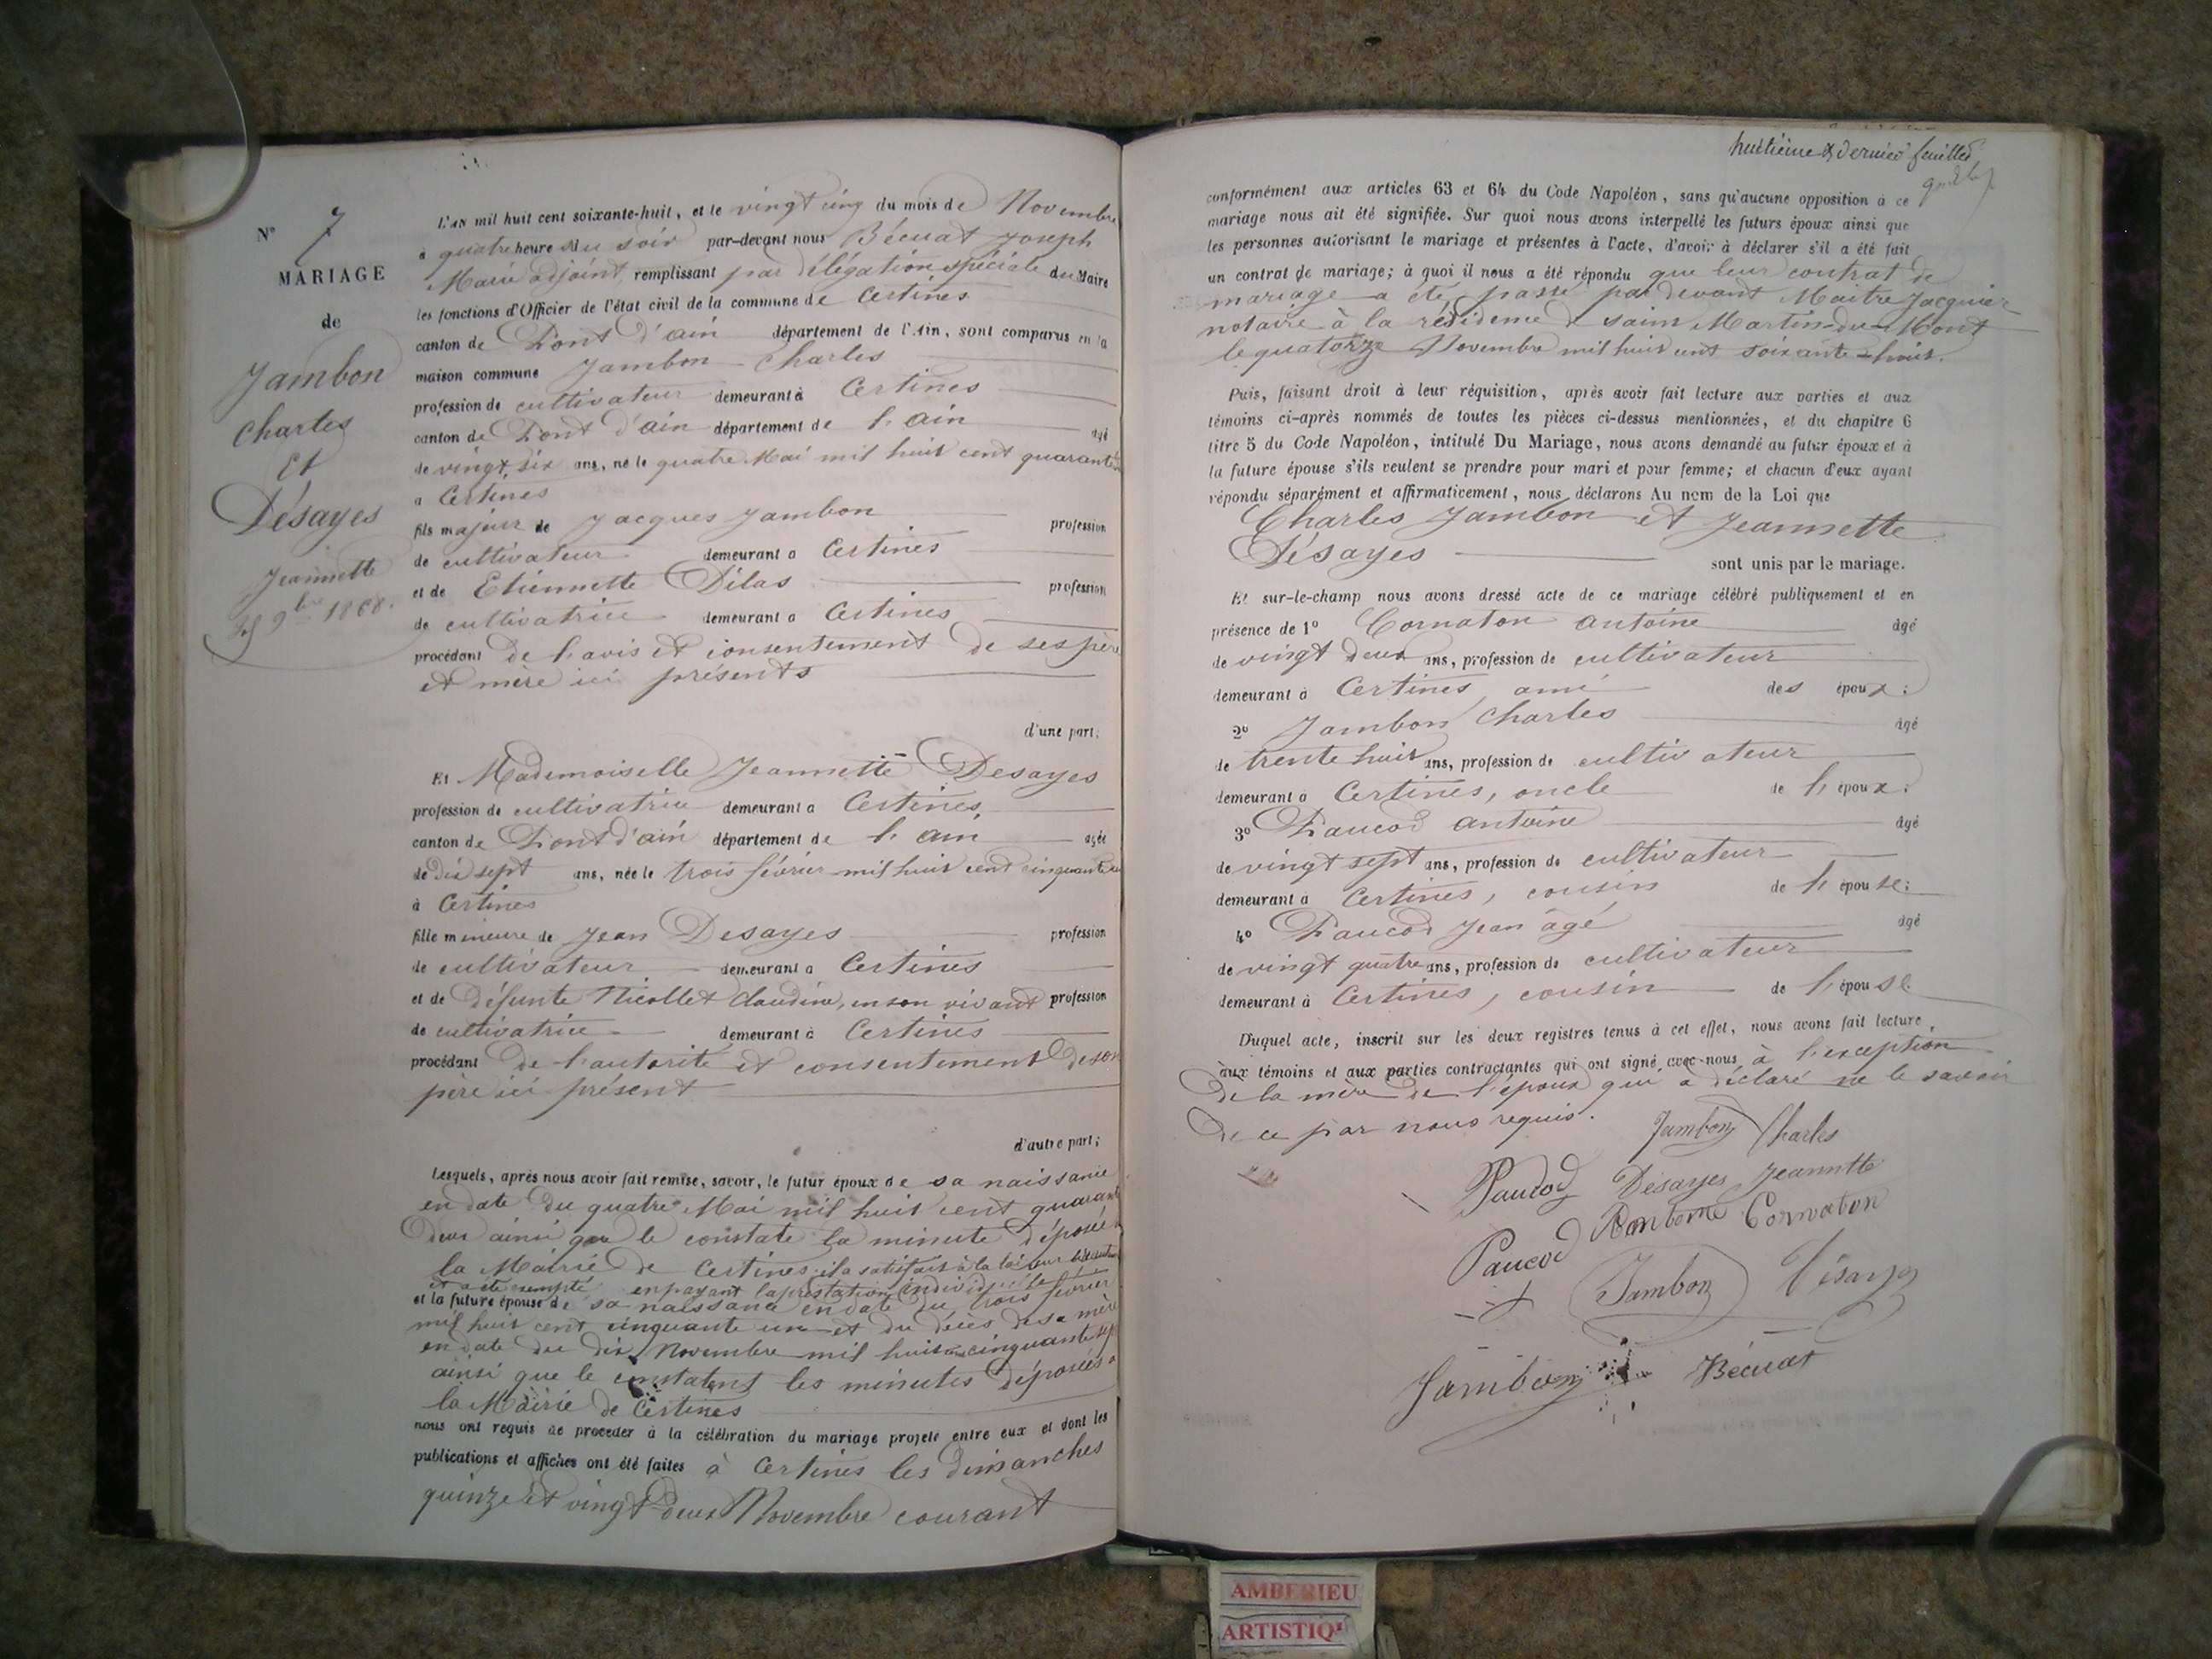 N° 7
MARIAGE
de
Jambon
Charles
et
Désayes
Jeannette
25 9bre 1868.
L'an mil huit cent soixante-huit, et le vingt cinq du mois de Novembre
à quatre heure s du soir par-devant nous Bécuat Joseph
Marie adjoint, remplissant par délégation spéciale du Maire
les fonctions d'Officier de l'état civil de la commune de Certines
canton de Pont d'ain département de l'Ain, sont comparus en la
maison commune Jambon Charles
profession de cultivateur demeurant à Certines
canton de Pont d'ain département de l'ain âgé
de vingt six ans, né le quatre Mai mil huit cent quarante
à Certines
fils majeur de Jacques Jambon profession
de cultivateur demeurant à Certines
et de Etiennette Dilas profession
de cultivatrice demeurant à Certines
procédant de l'avis et consentement de ses père
et mère ici présents
d'une part;
Et Mademoiselle Jeannette Desayes
profession de cultivatrice demeurant à Certines,
canton de Pont d'ain département de l'ain âgée
de dix sept ans, née le trois février mil huit cent cinquante un
à Certines
fille mineure de Jean Desayes profession
de cultivateur demeurant à Certines
et de défunte Nicollet Claudine, en son vivant profession
de cultivatrice demeurant à Certines
procédant de l'autorité et consentement de son
père ici présent
d'autre part;
Lesquels, après nous avoir fait remise, savoir, le futur époux de sa naissance
en date du quatre Mai mil huit cent quarante
deux ainsi que le constate la minute déposée à
la Mairie de Certines; il a satisfait à la loi sur
et a été exempté en payant la prestation individuelle
et la future épouse de sa naissance en date du trois février
mil huit cent cinquante un et du décès de sa mère
en date du dix Novembre mil huit cent cinquante sept
ainsi que le constatent les minutes déposées à
la Mairie de Certines
nous ont requis de procéder à la célébration du mariage projeté entre eux et dont les
publications et affiches ont été faites à Certines les dimanches
quinze et vingt deux Novembre courant
huitième & dernier feuillet
conformément aux articles 63 et 64 du Code Napoléon, sans qu'aucune opposition à ce
mariage nous ait été signifiée. Sur quoi nous avons interpellé les futurs époux ainsi que
les personnes autorisant le mariage et présentes à l'acte, d'avoir à déclarer s'il a été fait
un contrat de mariage; à quoi il nous a été répondu que leur contrat de
mariage a été passé par devant Maitre Jacquier
notaire à la résidence de saint Martin-du-Mont
le quatorze Novembre mil huit cent soixante-huit.
Puis, faisant droit à leur réquisition, après avoir fait lecture aux parties et aux
témoins ci-après nommés de toutes les pièces ci-dessus mentionnées, et du chapitre 6
titre 5 du Code Napoléon, intitulé Du Mariage, nous avons demandé au futur époux et à
la future épouse s'ils veulent se prendre pour mari et pour femme; et chacun d'eux ayant
répondu séparément et affirmativement, nous déclarons Au nom de la Loi que
Charles Jambon et Jeannette
Désayes
sont unis par le mariage.
Et sur-le-champ nous avons dressé acte de ce mariage célébré publiquement et en
présence de 1° Cornaton antoine âgé
de vingt deux ans, profession de cultivateur
demeurant à Certines, ami des époux;
2° Jambon Charles âgé
de trente huit ans, profession de cultivateur
demeurant à Certines, oncle de l'époux;
3° Paucod antoine âgé
de vingt sept ans, profession de cultivateur
demeurant à Certines, cousin de l'épouse;
4° Paucod Jean âgé âgé
de vingt quatre ans, profession de cultivateur
demeurant à Certines, cousin de l'épouse
Duquel acte, inscrit sur les deux registres tenus à cet effet, nous avons fait lecture
aux témoins et aux parties contractantes qui ont signé avec nous à l'exception
de la mère de l'époux qui a déclaré ne le savoir
de ce par nous requis.
Jambon Charles
Paucod Désayes Jeannette
Cornaton
Paucod
Jambon Désayes
Jambon Bécuat
AMBERIEU
ARTISTIQ